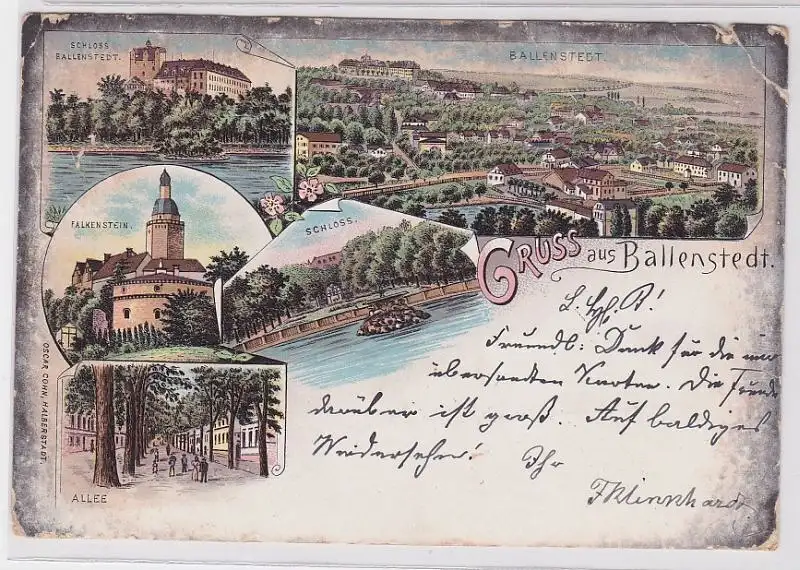 SCHLOSS
BALLENSTEDT.
BALLENSTEDT.
FALKENSTEIN.
SCHLOSS.
GRUSS aus Ballenstedt.
OSCAR COHN, HALBERSTADT.
ALLEE
Freundl: Dank für die mir
übersandten Karten. Die Freude
darüber ist groß. Auf baldiges
Wiedersehn! Ihr
FKlinkhardt